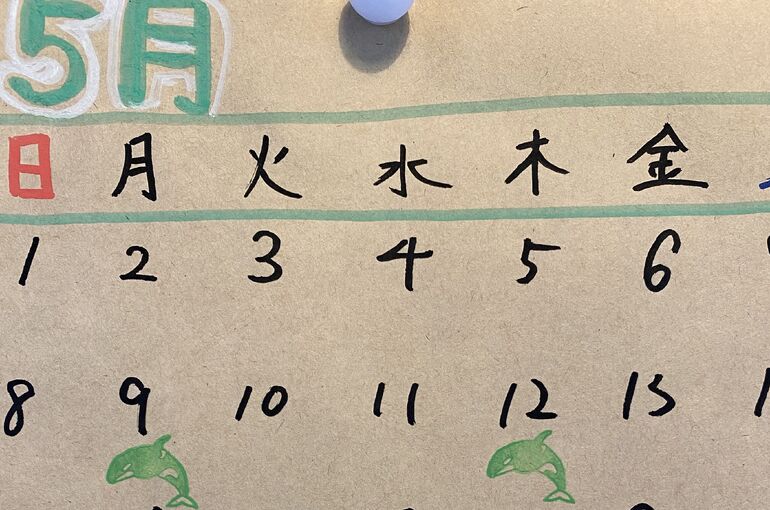 5月
日 月 火 水 木 金
1 2 3 4 5 6
8 9 10 11 12 13